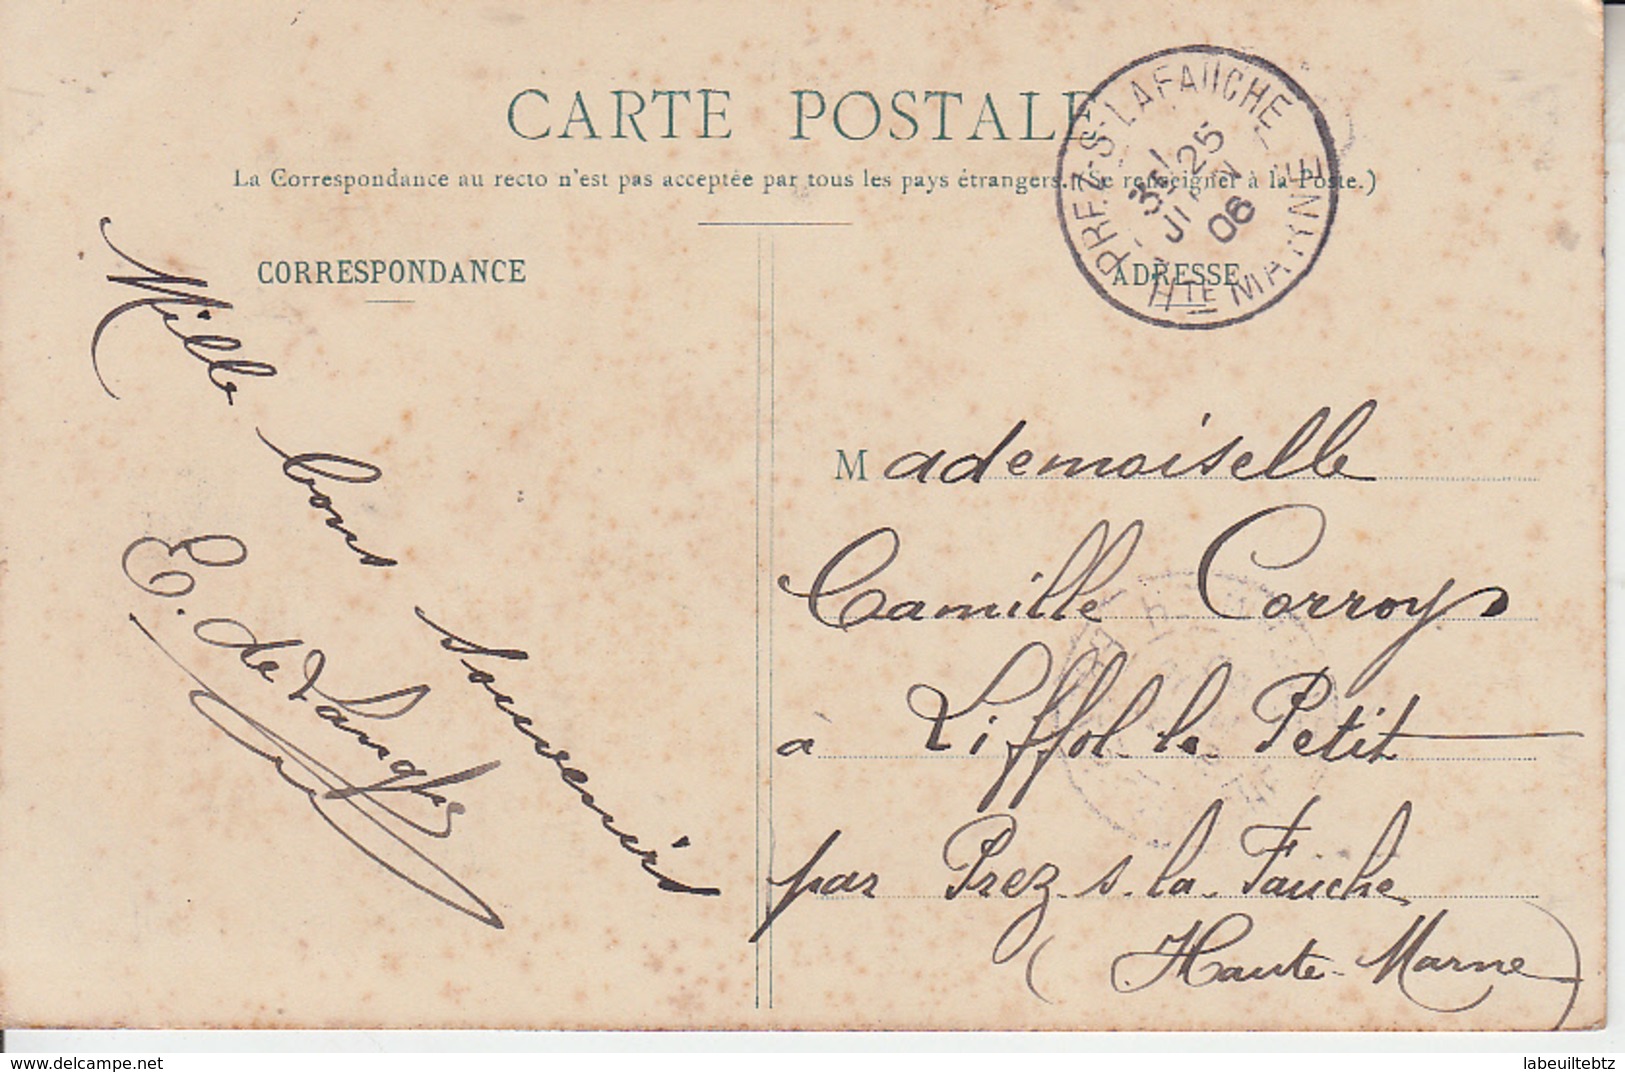 CARTE POSTALE
La Correspondance au recto n'est pas acceptée par tous les pays étrangers. (Se renseigner à la Poste.)
CORRESPONDANCE
ADRESSE
PREZ-S-LAFAUCHE
25
06
HTE MARNE
Mille
bons
souvenirs
E. de
Mademoiselle
Camille Corroy
à Liffol-le-Petit
par Prez-s-la-Fauche
(Haute-Marne)
delcampe.net
labeuiltebtz